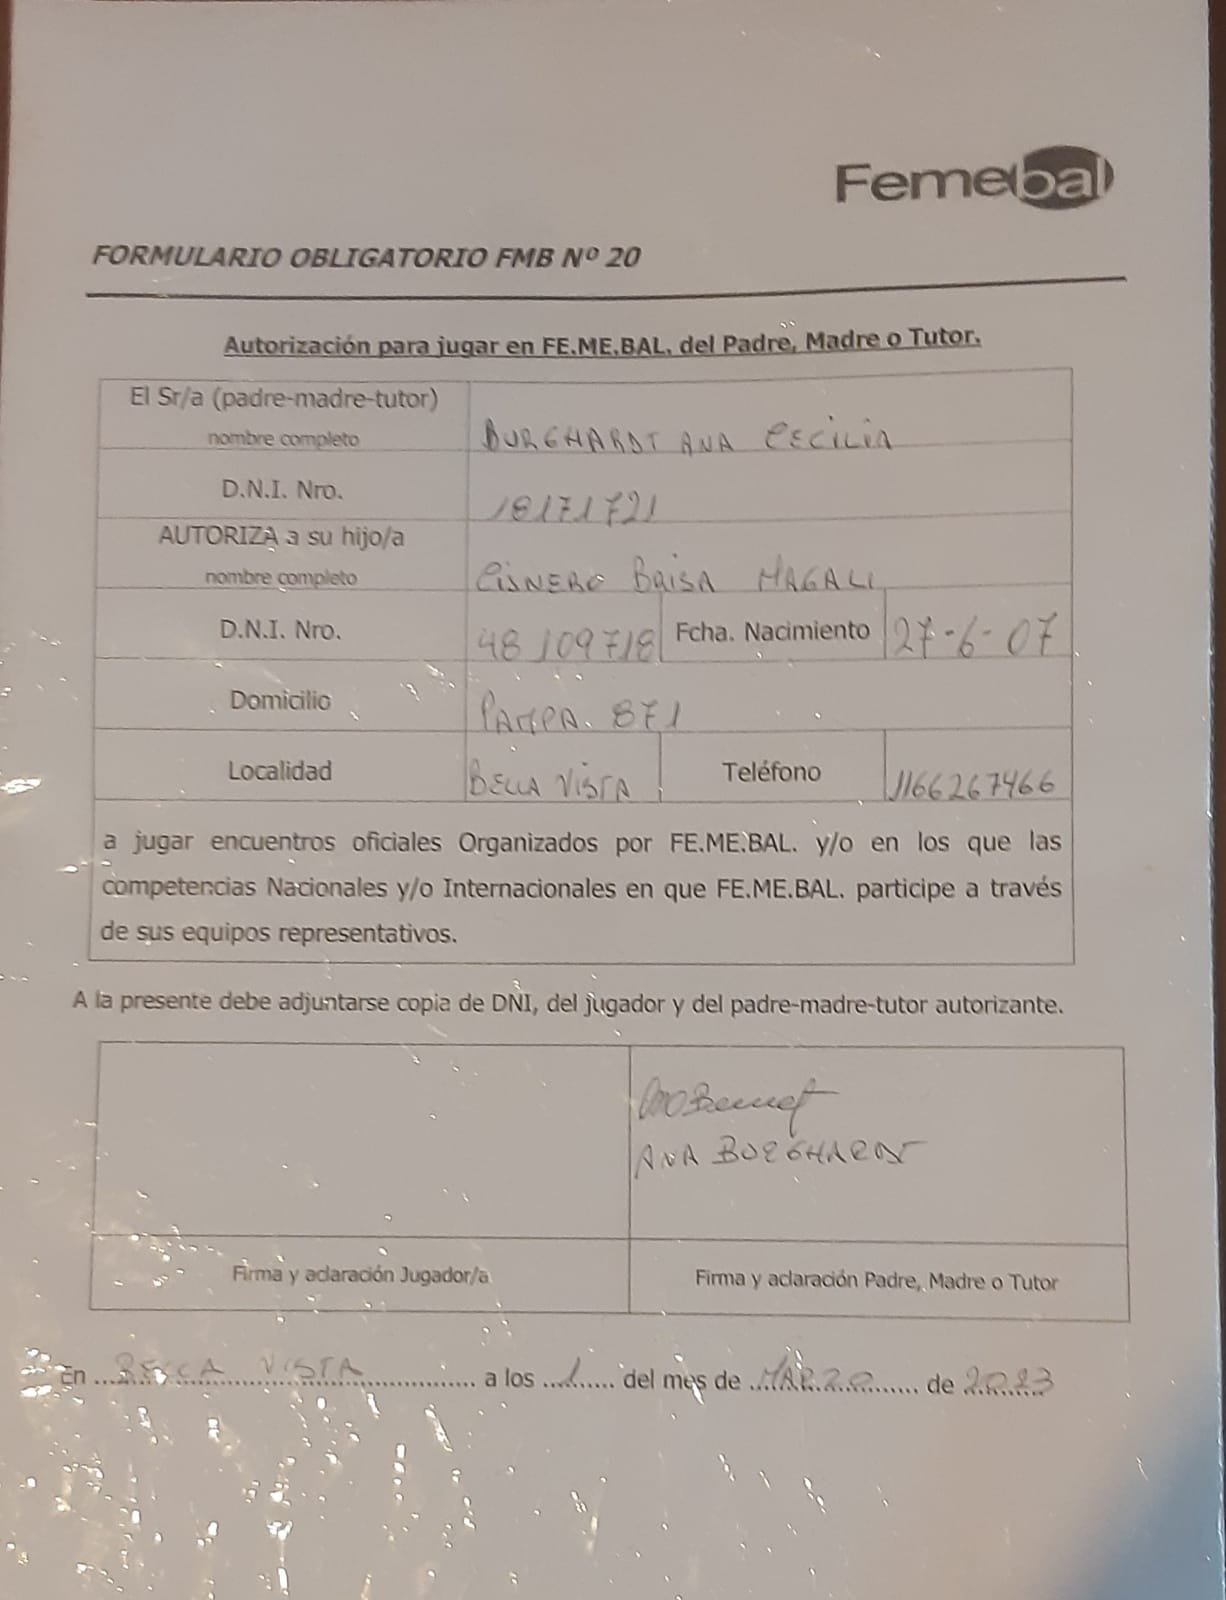 Femebal
FORMULARIO OBLIGATORIO FMB Nº 20
Autorización para jugar en FE.ME.BAL. del Padre, Madre o Tutor.
El Sr/a (padre-madre-tutor)
nombre completo
BURGHARDT ANA CECILIA
D.N.I. Nro.
18171721
AUTORIZA a su hijo/a
nombre completo
CISNERO BRISA MAGALI
D.N.I. Nro.
48109718
Fcha. Nacimiento
27-6-07
Domicilio
PAMPA. 871
Localidad
BELLA VISTA
Teléfono
1166267466
a jugar encuentros oficiales Organizados por FE.ME.BAL. y/o en los que las
competencias Nacionales y/o Internacionales en que FE.ME.BAL. participe a través
de sus equipos representativos.
A la presente debe adjuntarse copia de DNI, del jugador y del padre-madre-tutor autorizante.
ANA BURGHARDT
Firma y aclaración Jugador/a
Firma y aclaración Padre, Madre o Tutor
En BELLA VISTA a los 1 del mes de MARZO de 2023